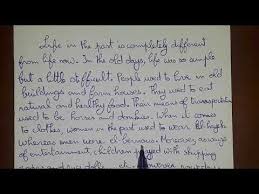 Life in the past is completely different
from life now. In the old days, life was so simple
but a little difficult. People used to live in old
buildings and farm houses. They used to eat
natural and healthy food. Their means of transportation
used to be horses and donkeys. When it comes
to clothes, women in the past used to wear El-hayek
whereas men wore El-bernous. Moreover,
of entertainment, children played with skipping